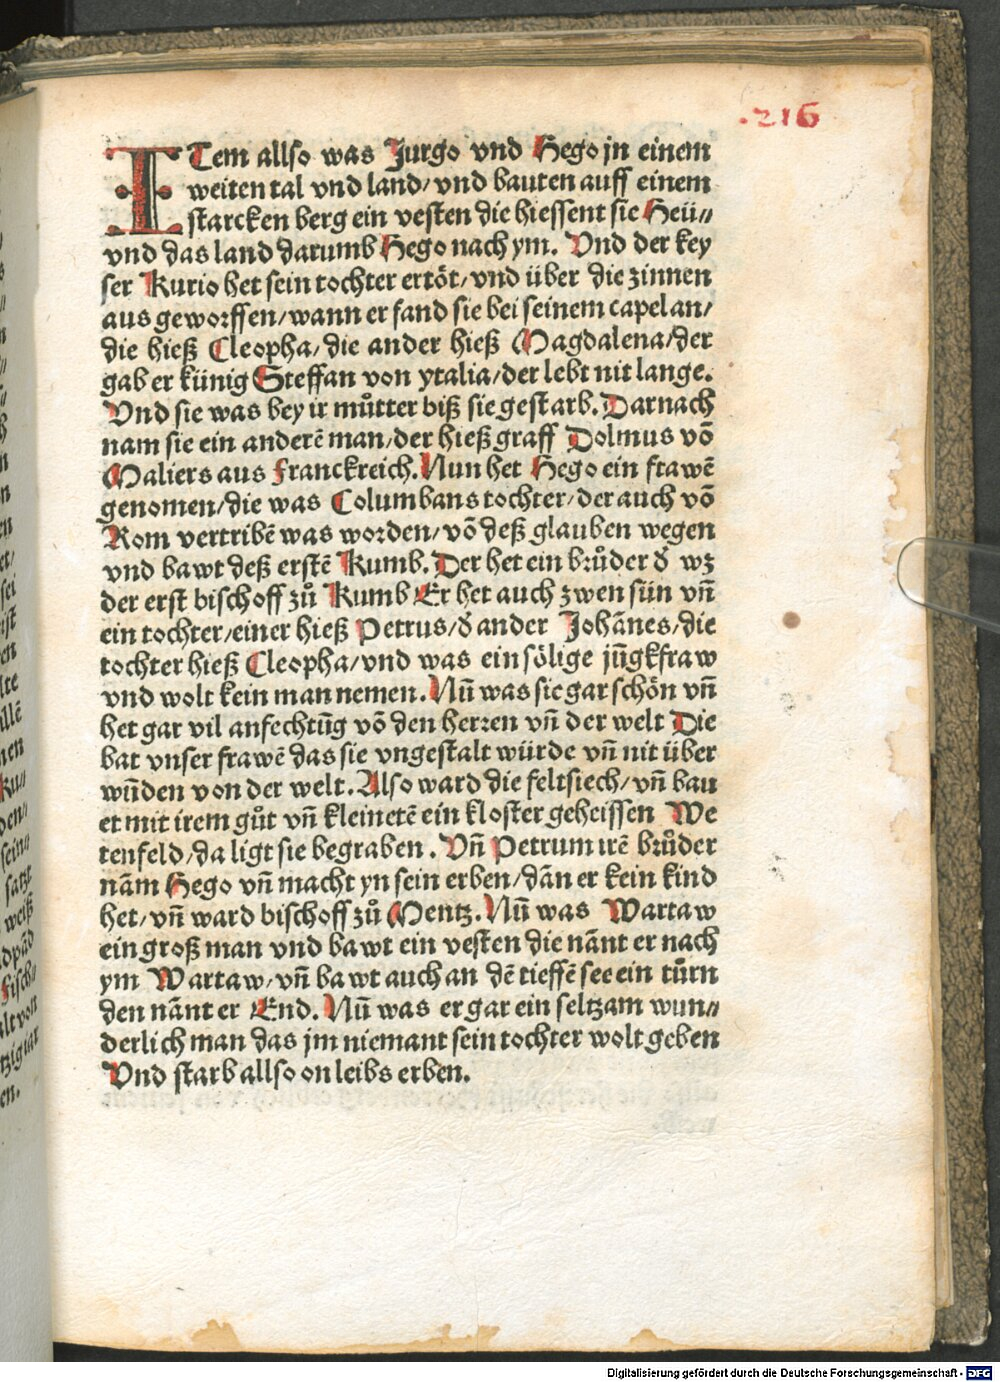 .216
ITem allso was Jurgo vnd Hego jn einem
weiten tal vnd land/ vnd bauten auff einem
starcken berg ein vesten die hiessent sie Heü⸗
vnd das land darumb Hego nach ym. Vnd der key
ser Kurio het sein tochter ertöt/ vnd über die zinnen
aus geworffen/ wann er fand sie bei seinem capelan/
die hieß Cleopha/ die ander hieß Magdalena/ der
gab er künig Steffan von ytalia/ der lebt nit lange.
Vnd sie was bey ir můtter biß sie gestarb. Darnach
nam sie ein anderē man/ der hieß graff Dolmus vō
Maliers aus Franckreich. Nun het Hego ein frawē
genomen/ die was Columbans tochter/ der auch vō
Rom vertribē was worden/ vō deß glauben wegen
vnd bawt deß erstē Kumb. Der het ein brůder d̕ wz
der erst bischoff zů Kumb Er het auch zwen sün vn̄
ein tochter/ einer hieß Petrus/ d̕ ander Johānes/ die
tochter hieß Cleopha/ vnd was ein sölige jūgkfraw
vnd wolt kein man nemen. Nū was sie gar schön vn̄
het gar vil anfechtūg vō den herren vn̄ der welt Die
bat vnser frawē das sie vngestalt würde vn̄ nit über
wūden von der welt. Also ward die feltsiech/ vn̄ bau
et mit irem gůt vn̄ kleinetē ein kloster geheissen We
tenfeld/ da ligt sie begraben. Vn̄ Petrum irē brůder
nām Hego vn̄ macht yn sein erben/ dān er kein kind
het/ vn̄ ward bischoff zů Mentz. Nū was Wartaw
ein groß man vnd bawt ein vesten die nānt er nach
ym Wartaw/ vn̄ bawt auch an dē tieffē see ein tůrn
den nānt er End. Nū was er gar ein seltzam wun⸗
derlich man das jm niemant sein tochter wolt geben
Vnd starb allso on leibs erben.
Digitalisierung gefördert durch die Deutsche Forschungsgemeinschaft - DFG